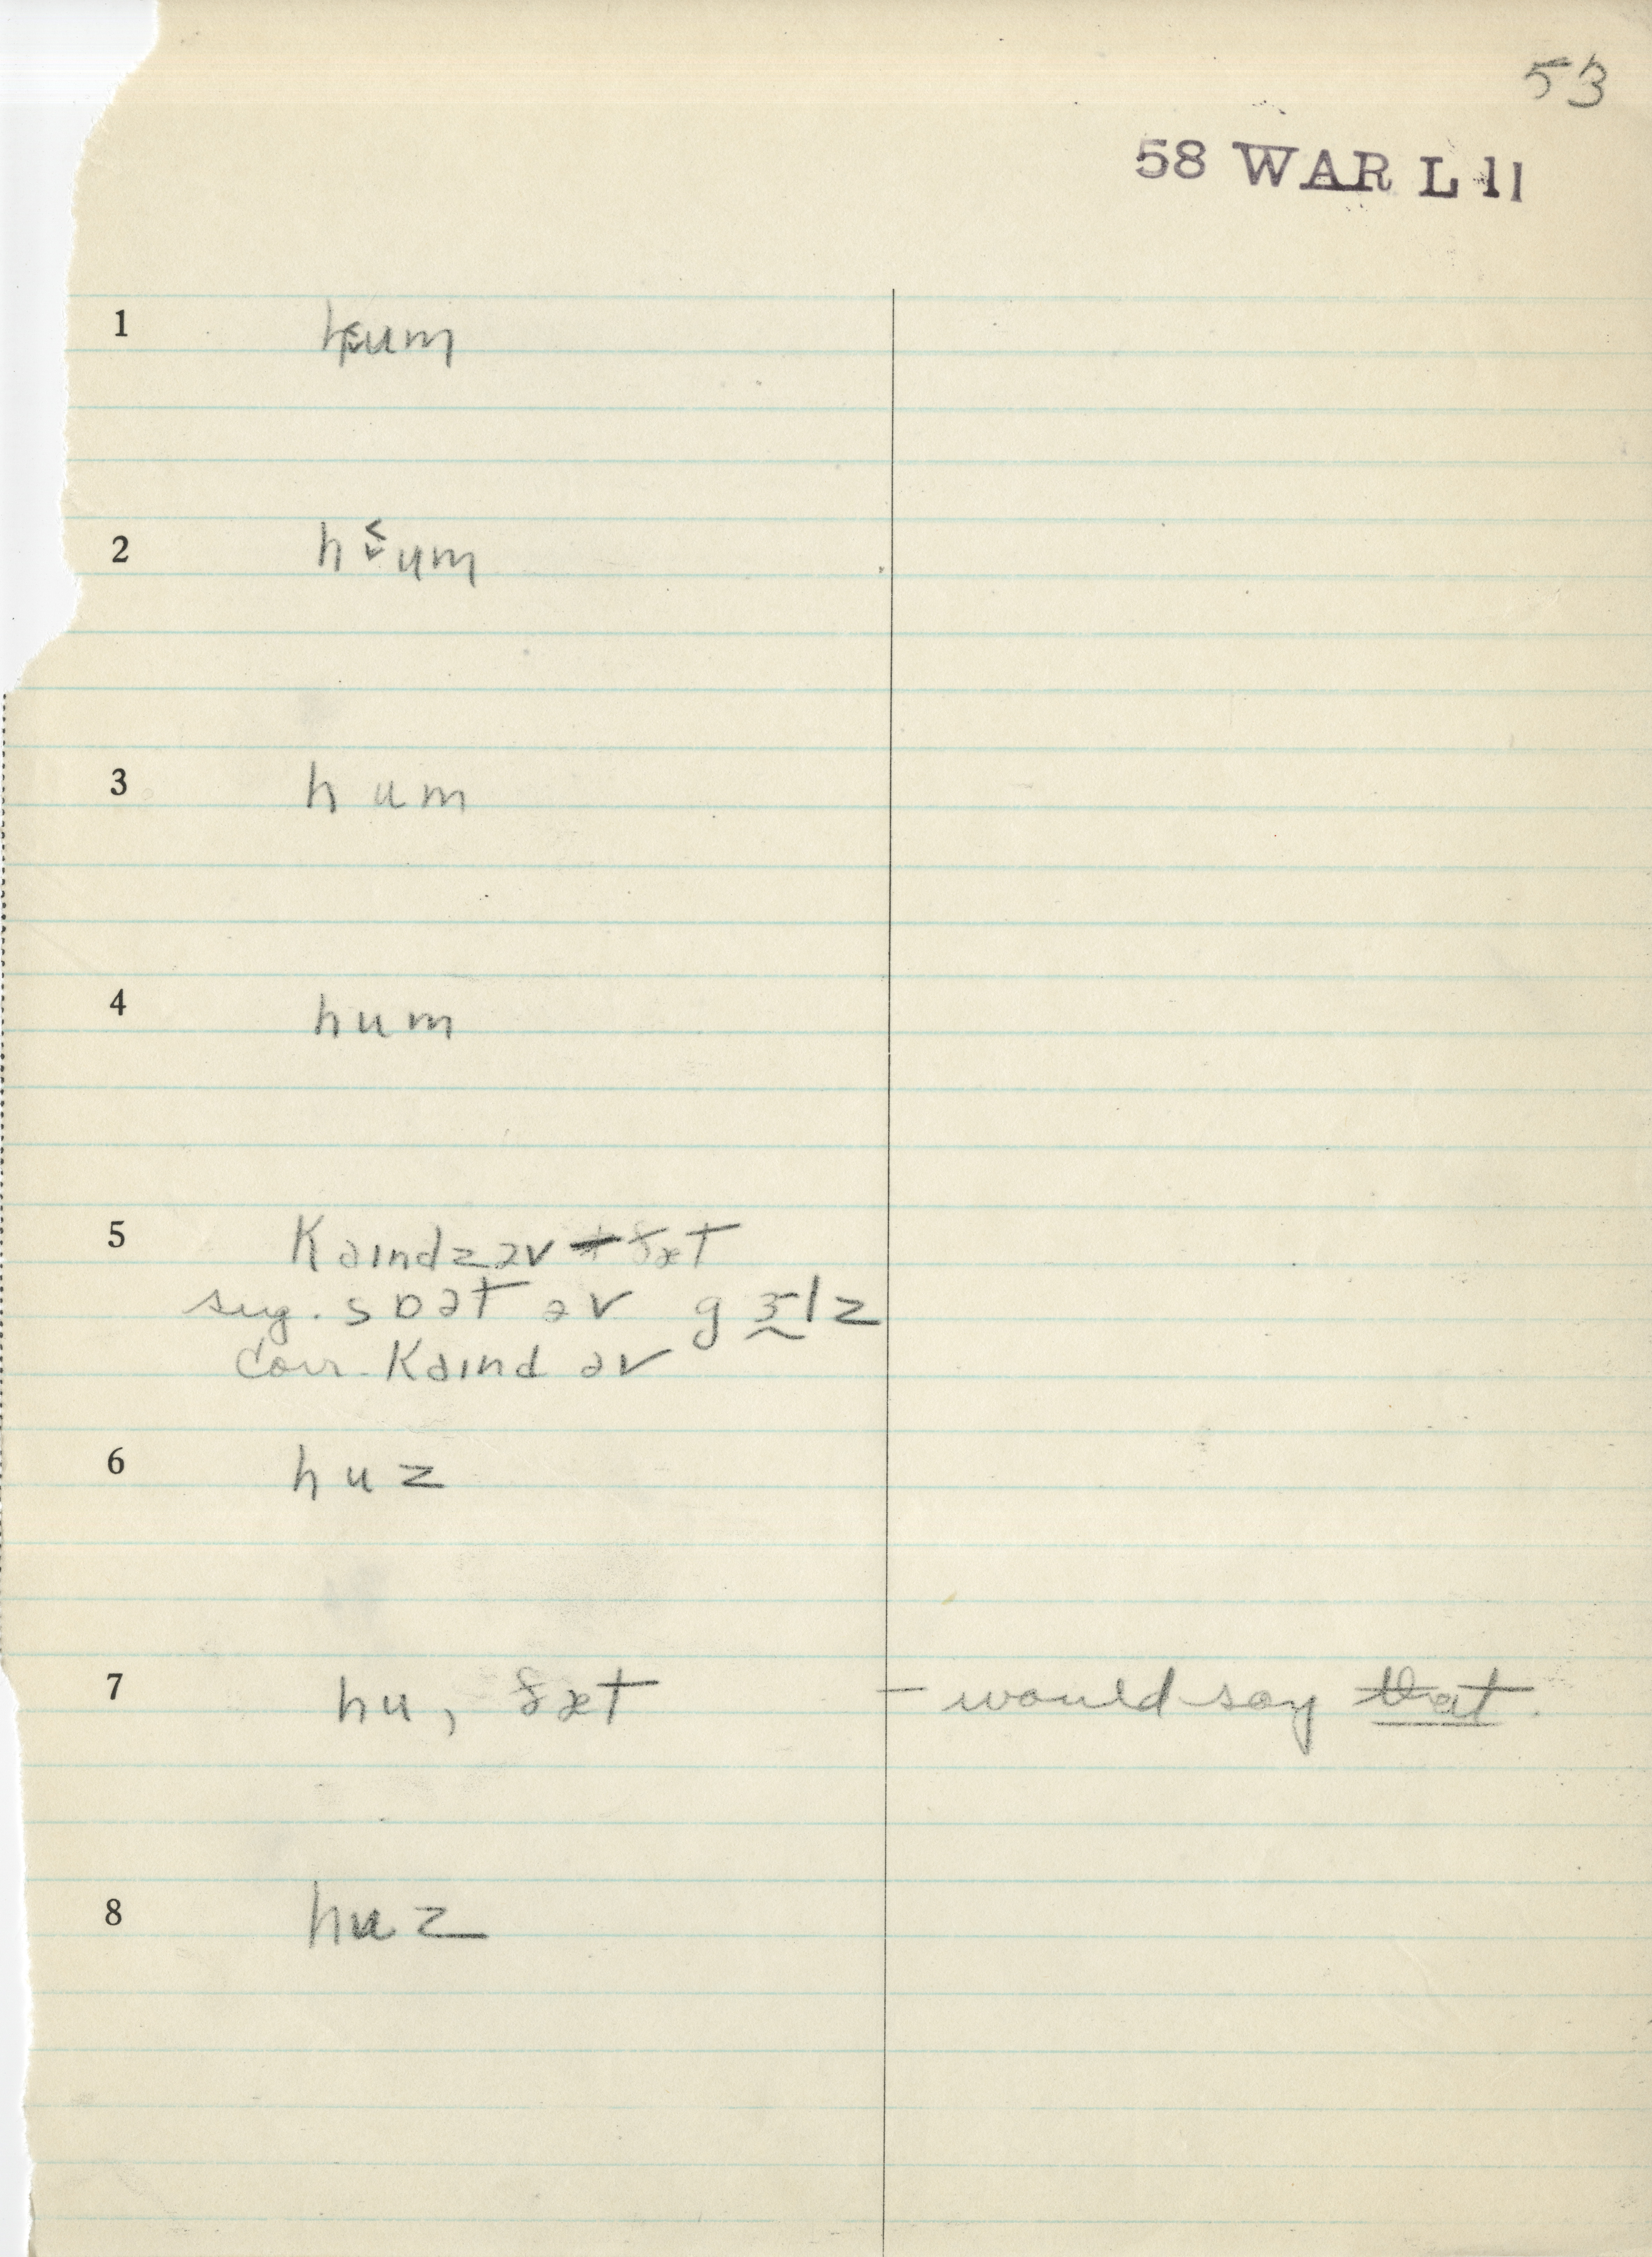 53
58 WAR L 11
1 h˂˅um
2 h˂˅um
3 hum
4 hum
5 kaɪndzəv ðæt
sug. sɒət əv gɜ̰lz
corr. kaɪnd əv
6 huz
7 hu, ðæt — would say that.
8 huz